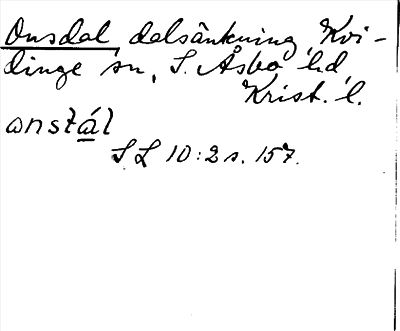 Onsdal dalsänkning Kvi-
dinge sn, S. Åsbo hd
Krist. l.
ɷnstál
SL 10:2 s. 157.